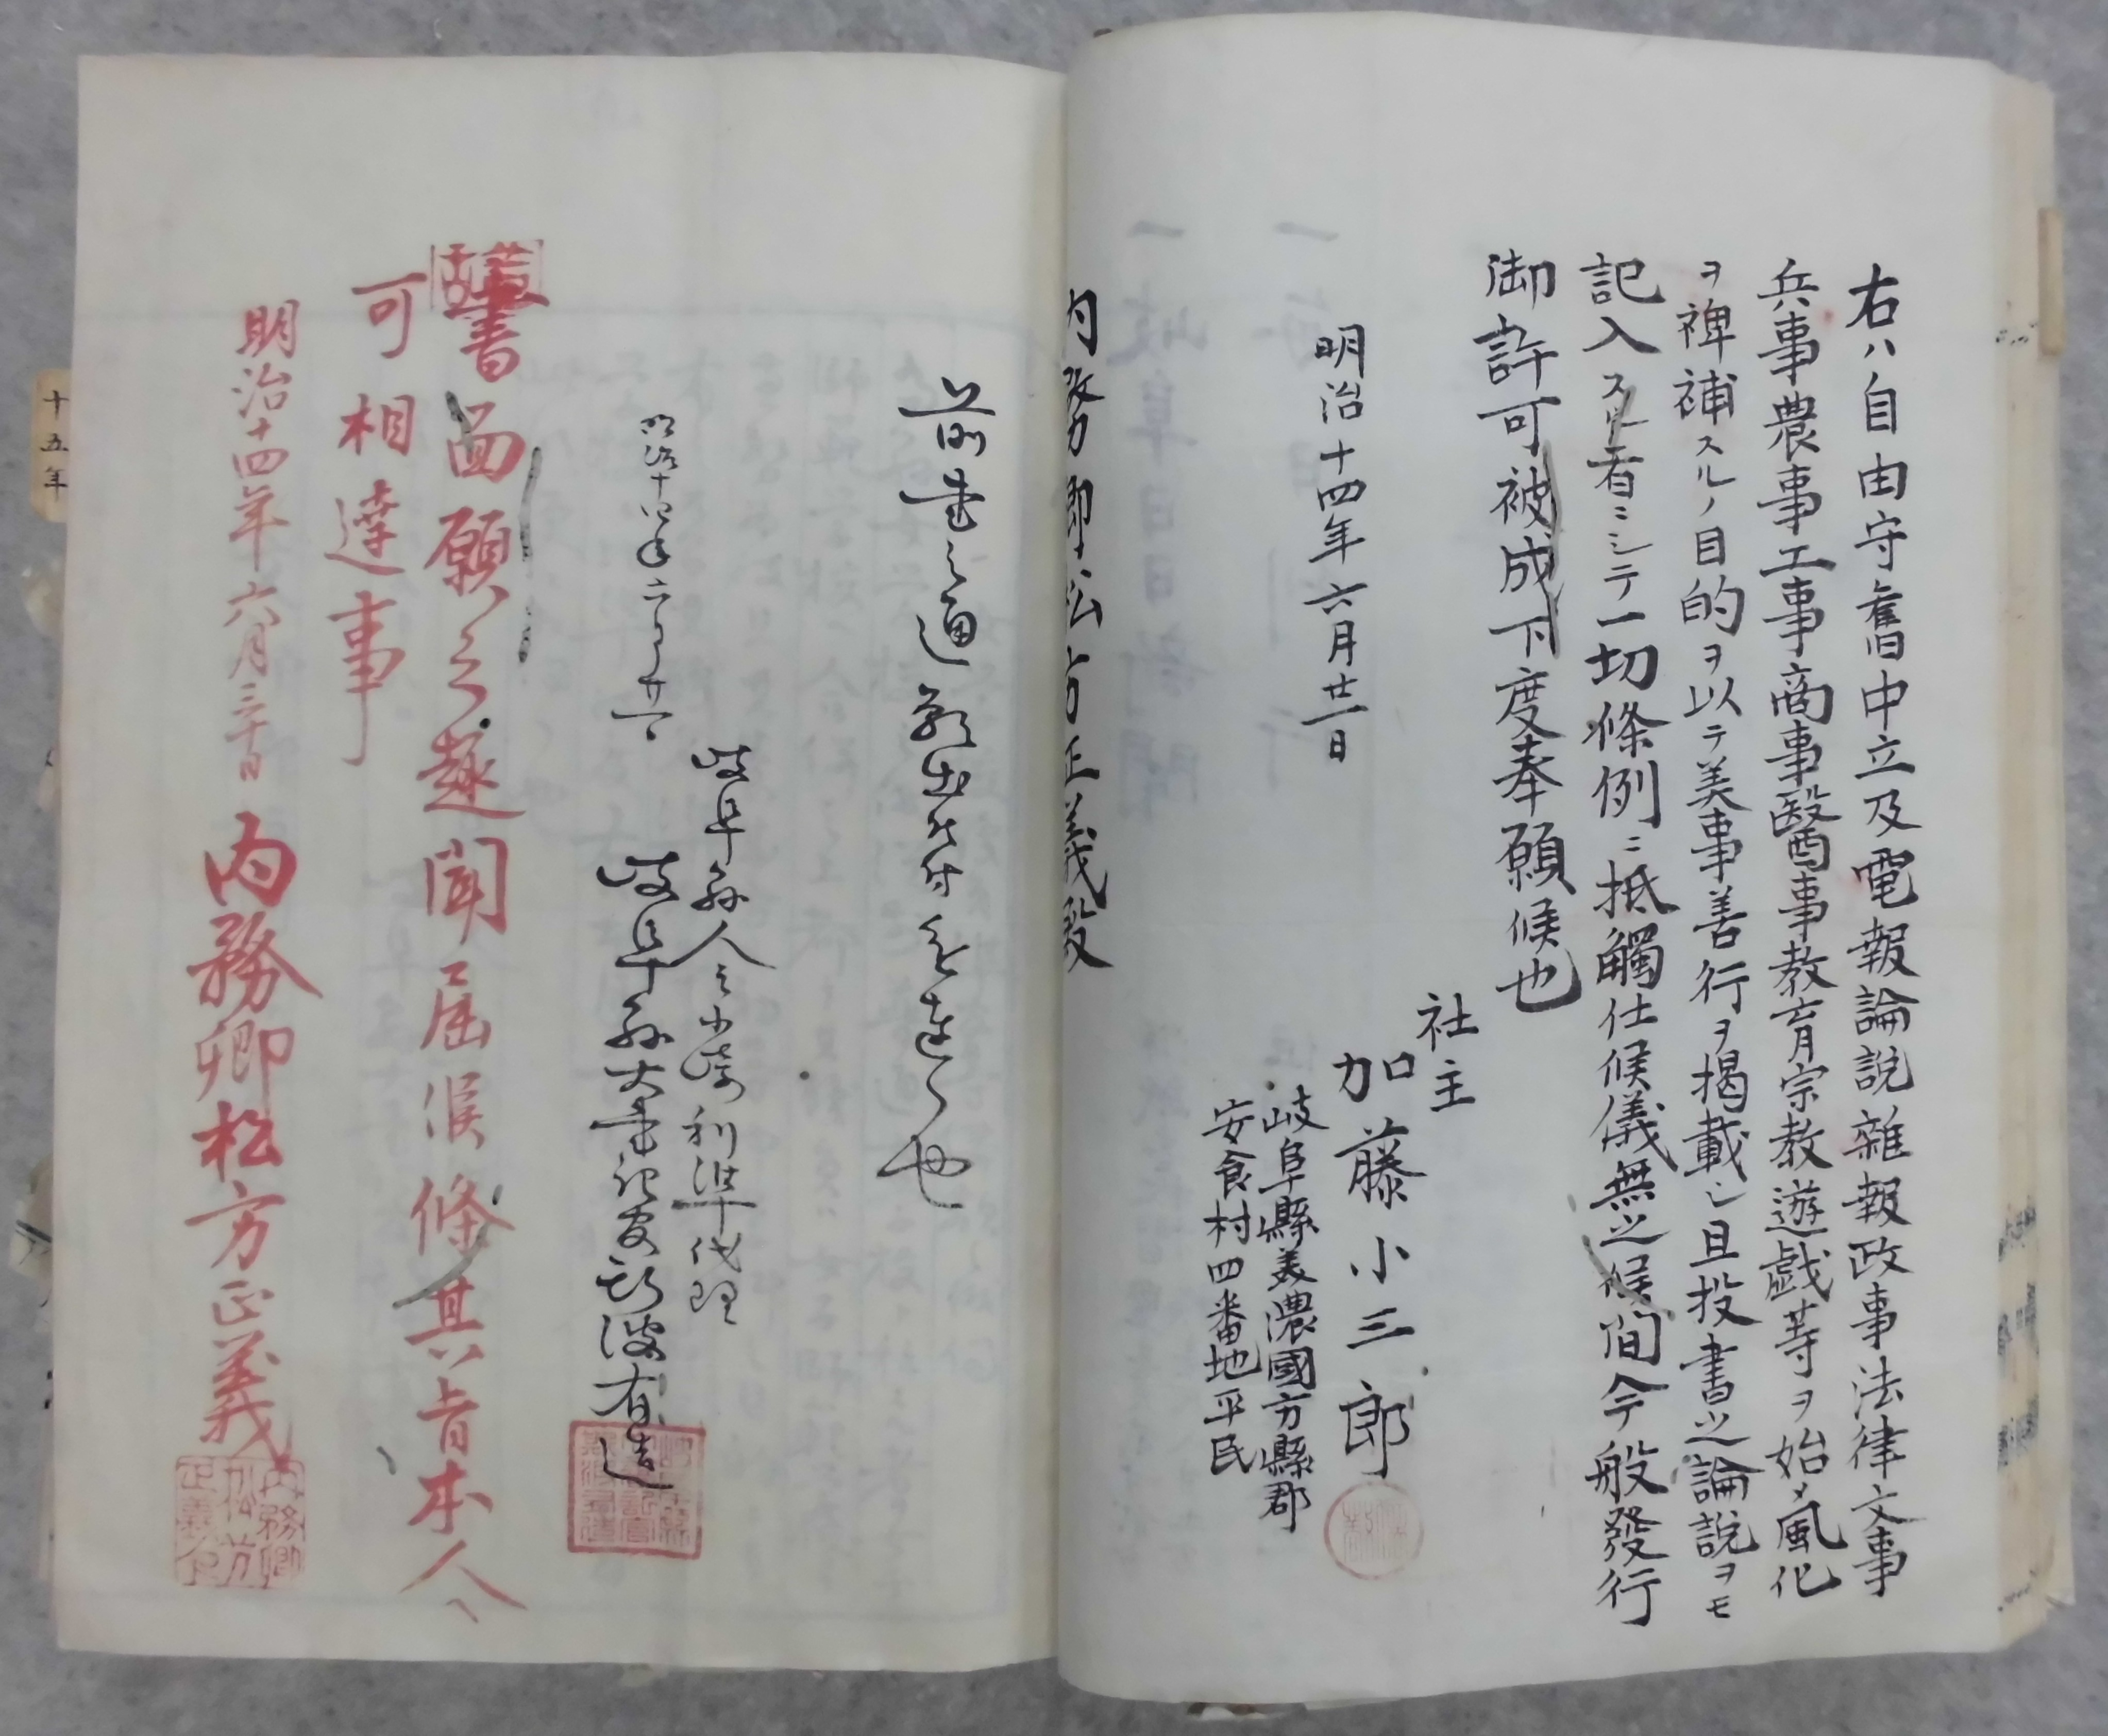 右ハ自由守舊中立及電報論説雜報政事法律文事
兵事農事工事商事醫事教育宗教遊戯等ヲ始メ風化
ヲ裨補スルノ目的ヲ以テ美事善行ヲ掲載シ且投書之論説ヲモ
記入スル者ニシテ一切條例ニ抵觸仕候儀無之候間今般發行
御許可被成下度奉願候也
社主
明治十四年六月廿一日
加藤小三郎
岐阜縣美濃國方縣郡
安食村四番地平民
内務卿松方正義殿
前書之通願出候付進達候也
岐阜縣令小崎利準代理
明治十四年六月廿一日
岐阜縣大書記官
書面願之趣聞届候條其旨本人ヘ
可相達事
明治十四年六月三十日
内務卿松方正義
内務卿松方正義印
十五年